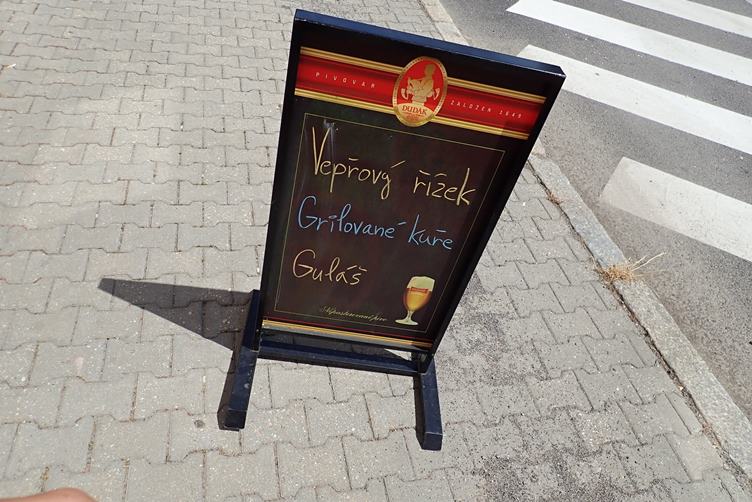 PIVOVAR DUDÁK ZALOŽEN 1649
Vepřový řízek
Grilované kuře
Guláš